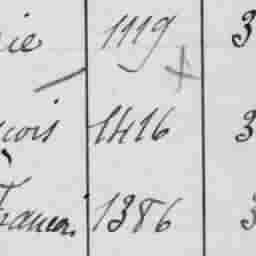 ie 1119 3
çois 1416 3
Franço. 1386 3